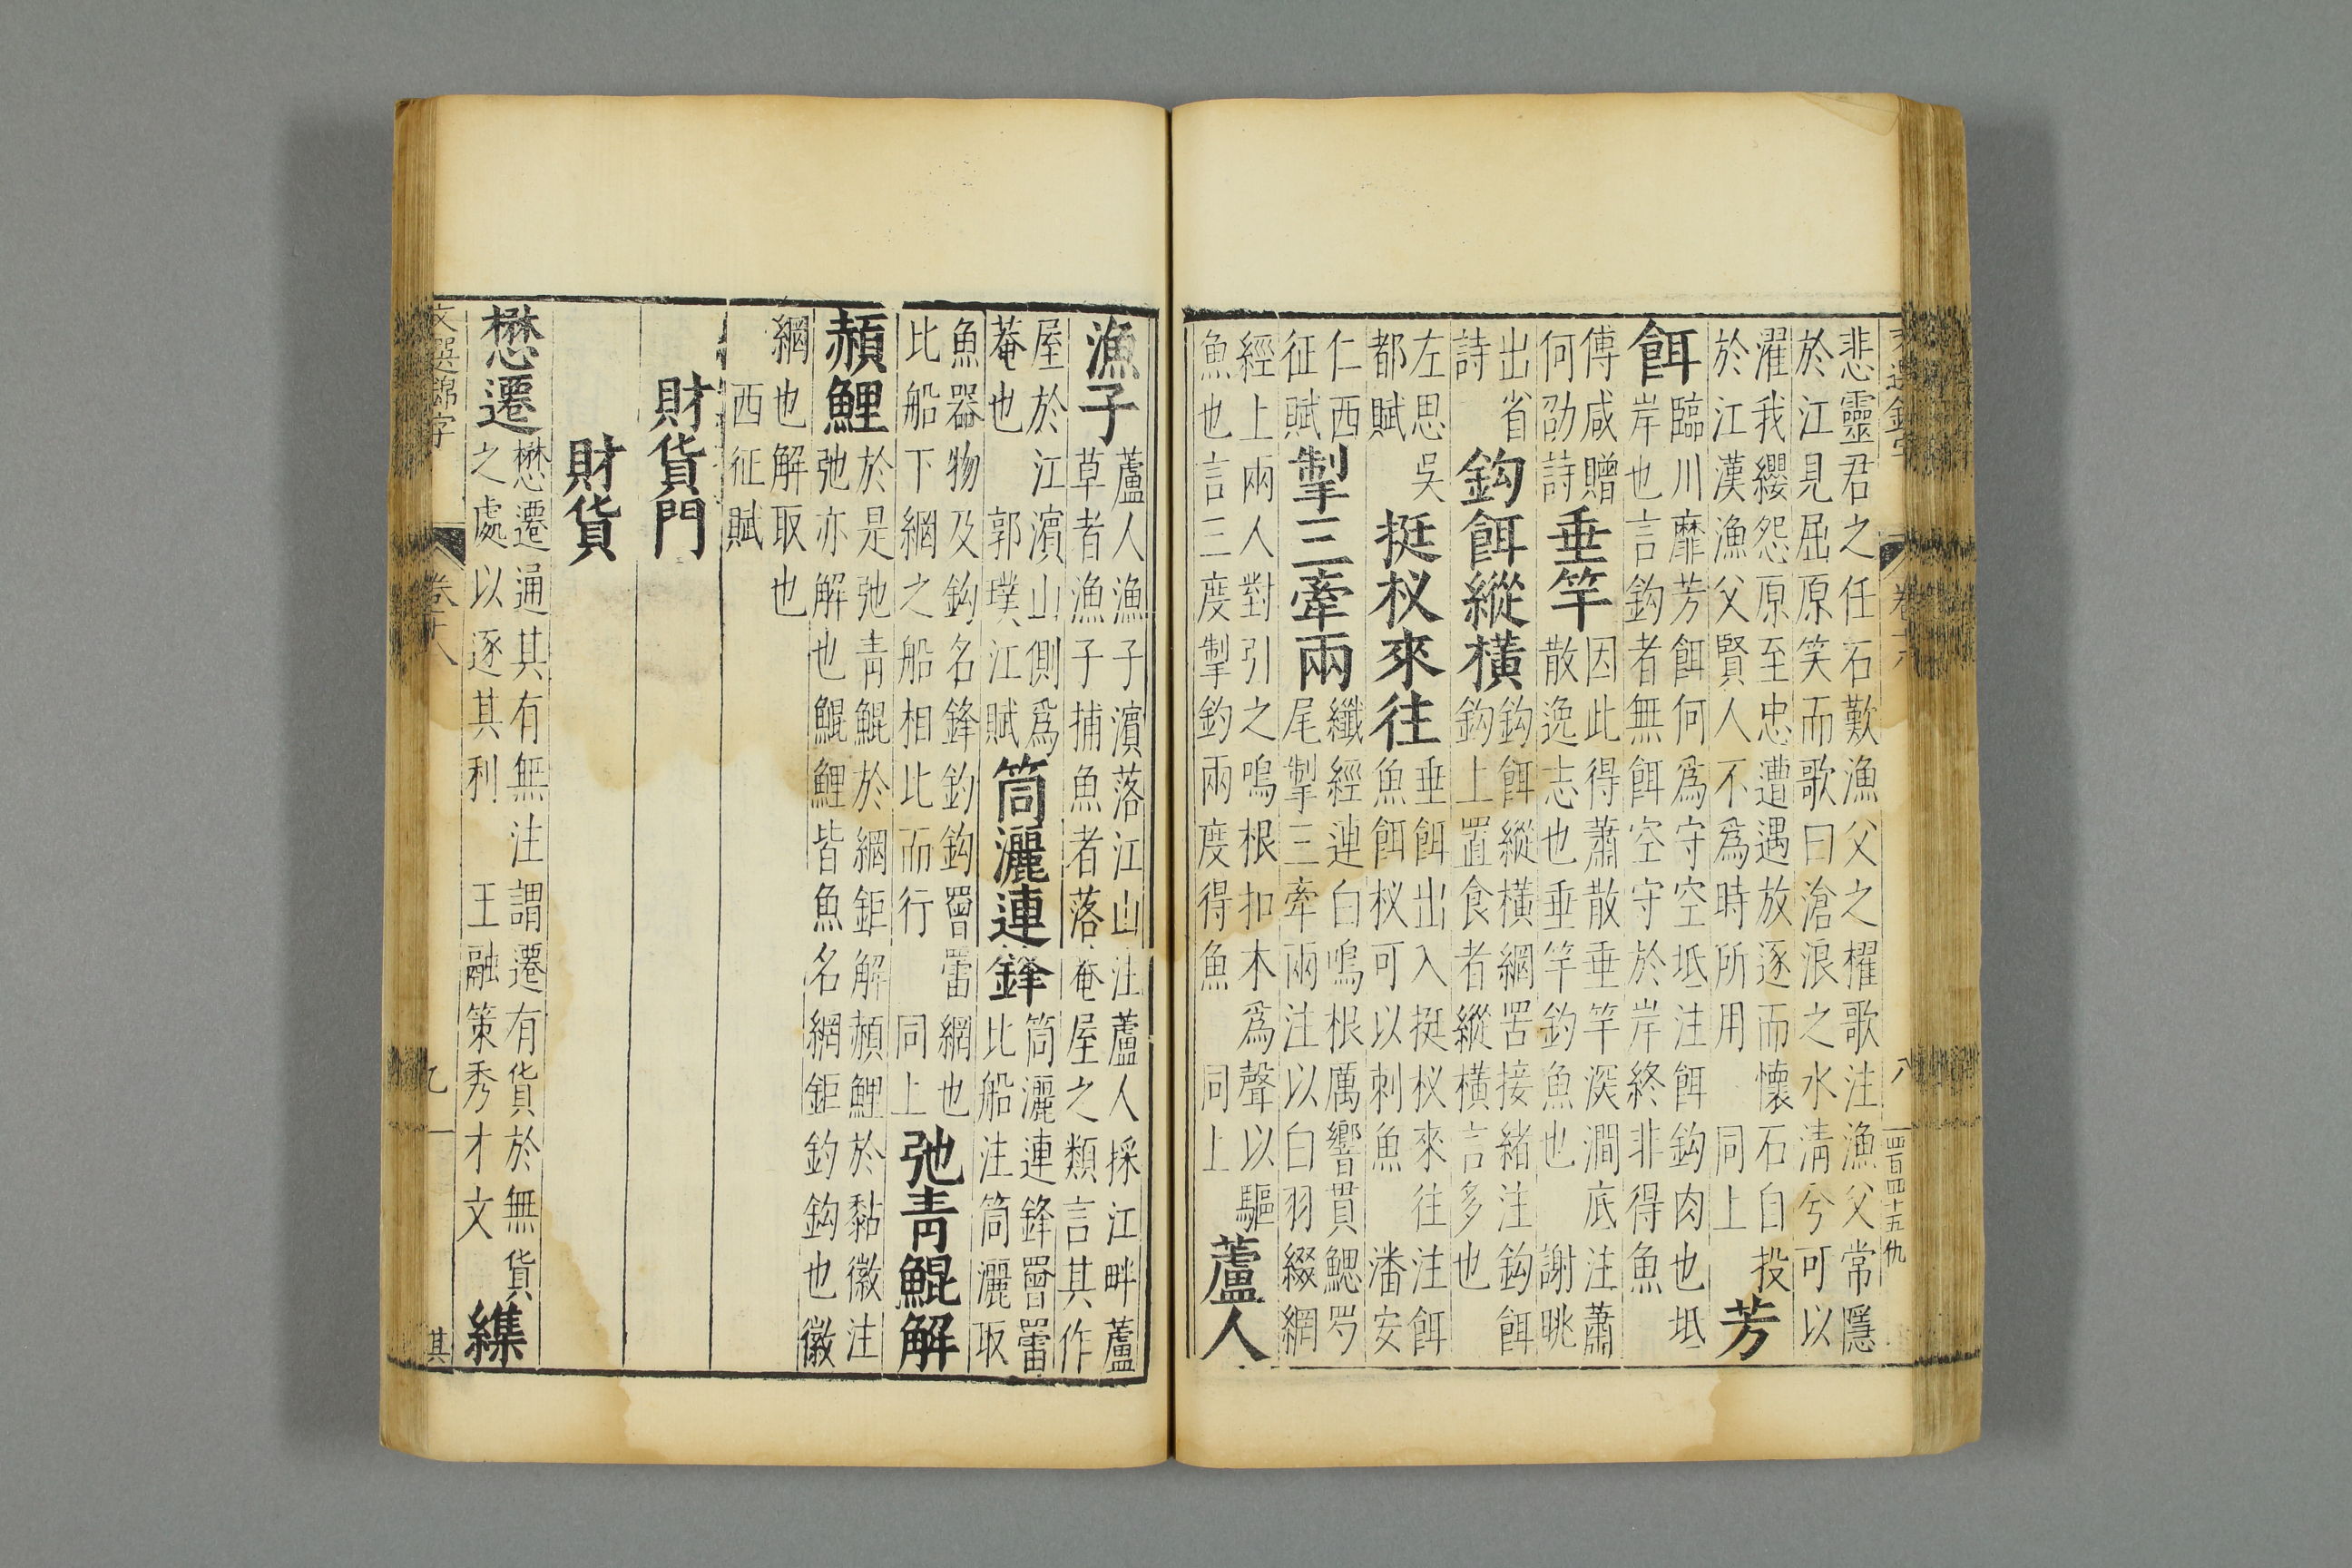 悲靈君之任石歎漁父之櫂歌注漁父常隱
於江見屈原笑而歌曰滄浪之水淸兮可以
濯我纓怨原至忠遭遇放逐而懷石自投
於江漢漁父賢人不爲時所用 同上 芳
餌 臨川靡芳餌何爲守空坻注餌鈎肉也坻
岸也言鈎者無餌空守於岸終非得魚
傅咸贈
何劭詩 垂竿 因此得蕭散垂竿深澗底注蕭
散逸志也垂竿釣魚也 謝眺
出省
詩 鈎餌縱橫 鈎餌縱橫網罟接緒注鈎餌
鈎上置食者縱橫言多也
左思吳
都賦 挺杈來往 垂餌出入挺杈來往注餌
魚餌杈可以刺魚 潘安
仁西
征賦 掣三牽兩 纖經連白鳴根厲響貫鰓罗
尾掣三牽兩注以白羽綴網
經上兩人對引之鳴根扣木爲聲以驅
魚也言三度掣釣兩度得魚 同上 蘆人
漁子 蘆人漁子濱落江山注蘆人採江畔蘆
草者漁子捕魚者落菴屋之類言其作
屋於江濱山側爲
菴也 郭璞江賦 筒灑連鋒 筒灑連鋒罾䍡
比船注筒灑取
魚器物及鈎名鋒釣鈎罾䍡網也
比船下網之船相比而行 同上 弛靑鯤解
赬鯉 於是弛靑鯤於網鉅解赬鯉於黏徽注
弛亦解也鯤鯉皆魚名網鉅釣鈎也徽
網也解取也
西征賦
財貨門
財貨
懋遷 懋遷通其有無注謂遷有貨於無貨
之處以逐其利 王融策秀才文 緤
文選錦字
卷十八
九
一
其
卷十八
八
四百四十五
仇